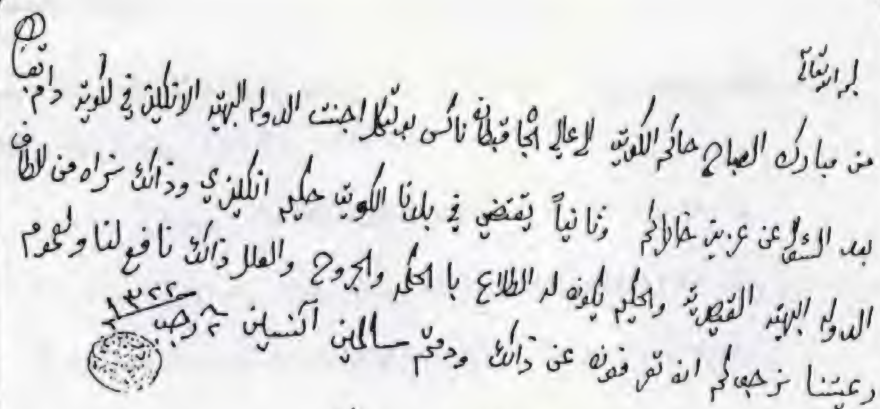 بسم الله تعالى
من مبارك الصباح حاكم الكويت لاعالي الجاه قبطان ناكس بولتكل اجنت الدوله البهية الانكليز في الكويت دام بقاه
بعد السؤال عن عزيز خاطركم وثانياً يقتضي في بلدنا الكويت حكيم انكليزي وذالك نراه من الطاف
الدوله البهيه القيصرية والحكيم يكونه له اطلاع با الحكم والجروح والعلل ذالك نافع لنا ولعموم
رعيتنا نرجوكم انه تعرفونه عن ذالك ودمتم سالمين ٢ رجب ١٣٢٢